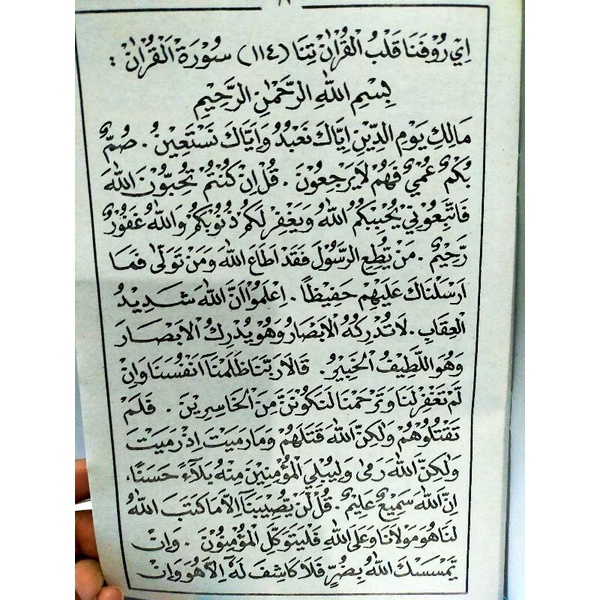 ٨
اِيْ رُوْفَنَا قَلْبُ الْقُرْاٰنْ تِنَا (١١٤) سُوْرَةْ الْقُرْاٰنْ :
بِسْمِ اللهِ الرَّحْمٰنِ الرَّحِيْمِ
مَالِكِ يَوْمِ الدِّيْنِ اِيَّاكَ نَعْبُدُ وَاِيَّاكَ نَسْتَعِيْنُ . صُمٌّ
بُكْمٌ عُمْيٌ فَهُمْ لَا يَرْجِعُوْنَ . قُلْ اِنْ كُنْتُمْ تُحِبُّوْنَ اللهَ
فَاتَّبِعُوْنِيْ يُحْبِبْكُمُ اللهُ وَيَغْفِرْ لَكُمْ ذُنُوْبَكُمْ وَاللهُ غَفُوْرٌ
رَّحِيْمٌ . مَنْ يُطِعِ الرَّسُوْلَ فَقَدْ اَطَاعَ اللهَ وَمَنْ تَوَلّٰى فَمَا
اَرْسَلْنَاكَ عَلَيْهِمْ حَفِيْظًا . اِعْلَمُوْا اَنَّ اللهَ شَدِيْدُ
الْعِقَابِ . لَا تُدْرِكُهُ الْاَبْصَارُ وَهُوَ يُدْرِكُ الْاَبْصَارَ
وَهُوَ اللَّطِيْفُ الْخَبِيْرُ . قَالَا رَبَّنَا ظَلَمْنَا اَنْفُسَنَا وَاِنْ
لَمْ تَغْفِرْ لَنَا وَتَرْحَمْنَا لَنَكُوْنَنَّ مِنَ الْخَاسِرِيْنَ . فَلَمْ
تَقْتُلُوْهُمْ وَلٰكِنَّ اللهَ قَتَلَهُمْ وَمَا رَمَيْتَ اِذْ رَمَيْتَ
وَلٰكِنَّ اللهَ رَمٰى وَلِيُبْلِيَ الْمُؤْمِنِيْنَ مِنْهُ بَلَاءً حَسَنًا ،
اِنَّ اللهَ سَمِيْعٌ عَلِيْمٌ . قُلْ لَنْ يُصِيْبَنَا اِلَّا مَا كَتَبَ اللهُ
لَنَا هُوَ مَوْلَانَا وَعَلَى اللهِ فَلْيَتَوَكَّلِ الْمُؤْمِنُوْنَ . وَاِنْ
يَمْسَسْكَ اللهُ بِضُرٍّ فَلَا كَاشِفَ لَهُ اِلَّا هُوَ وَاِنْ